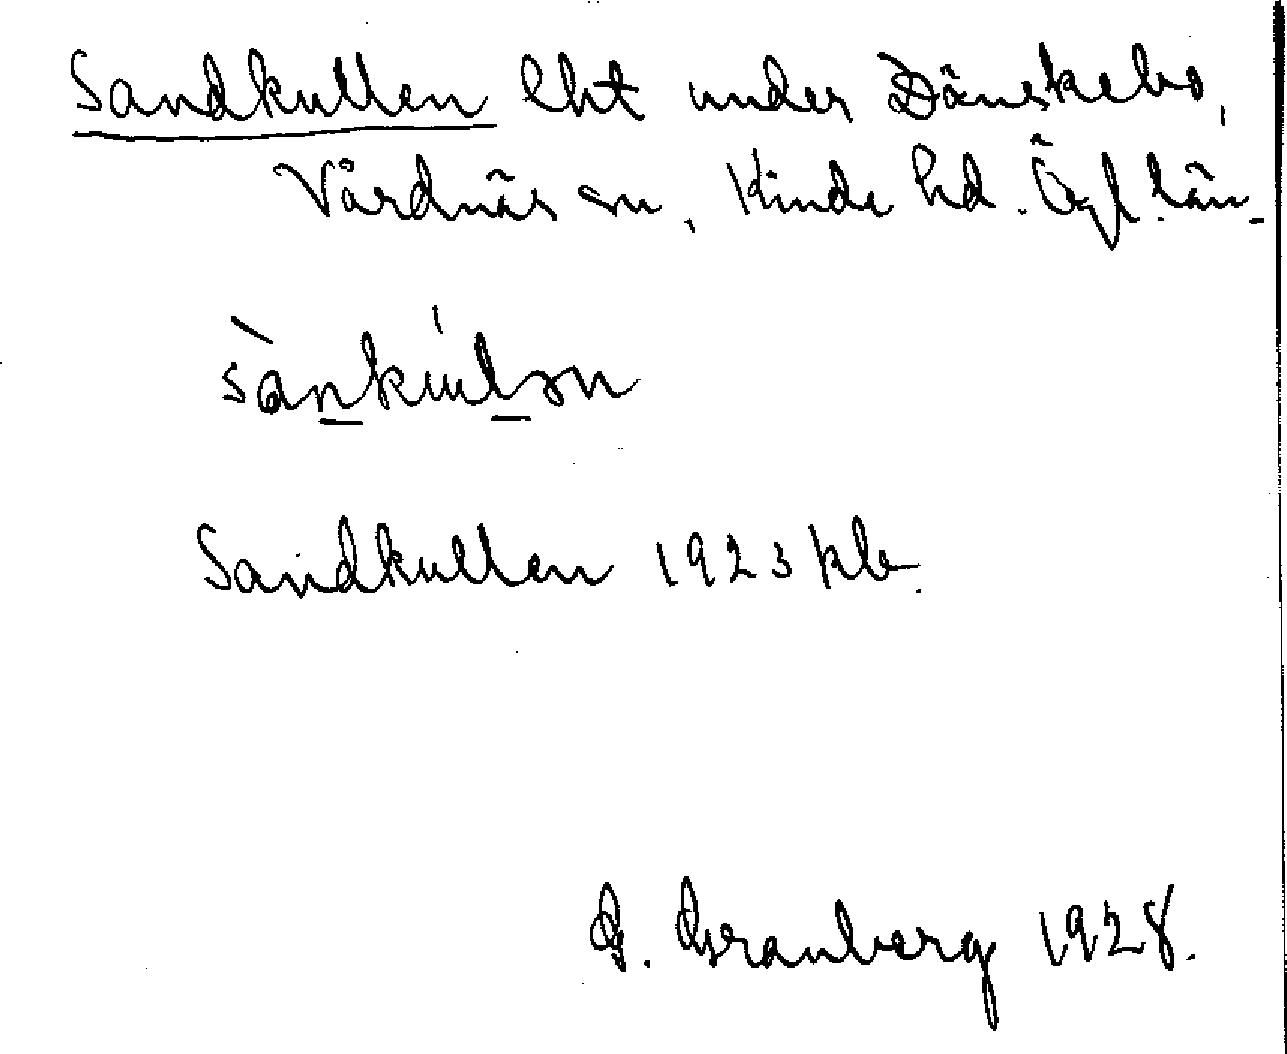 Sandkullen lht under Dänskebo,
Vårdnäs sn, Kinda hd. Ögl. län.
sànkúlən
Sandkullen 1923 klb.
G. Granberg 1928.